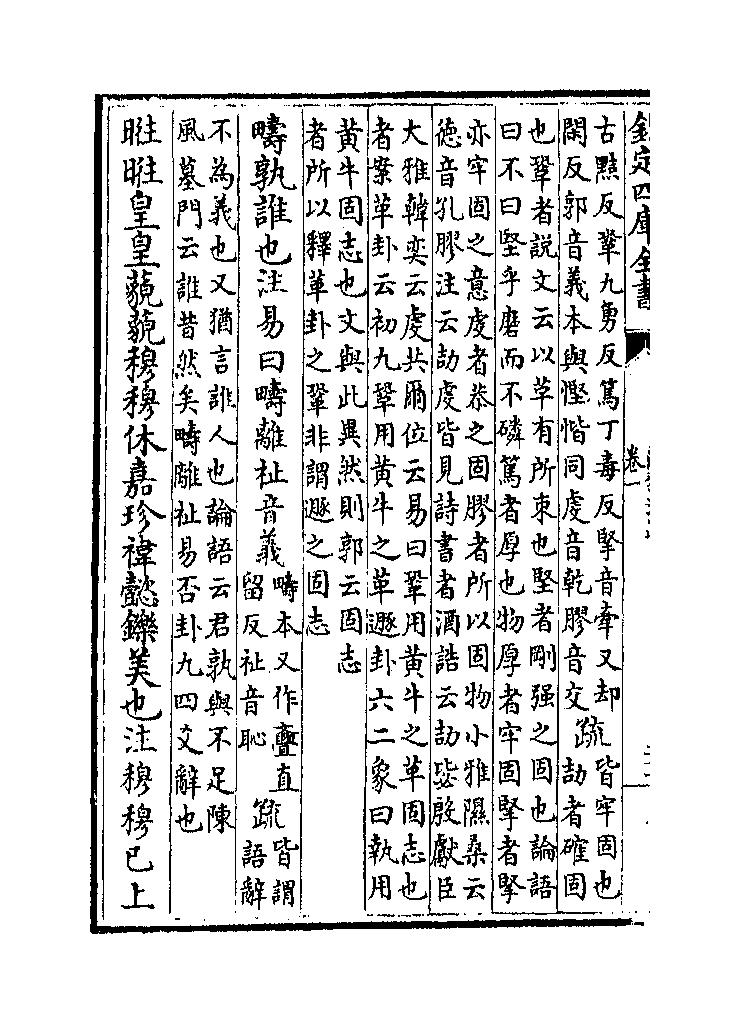 欽定四庫全書
卷一
古黠反鞏九勇反篤丁毒反掔音牽又却
閑反郭音義本與慳悋同虔音乾膠音交疏皆牢固也
劼者確固
也鞏者說文云以革有所束也堅者剛强之固也論語
曰不曰堅乎磨而不磷篤者厚也物厚者牢固掔者掔
亦牢固之意虔者恭之固膠者所以固物小雅隰桑云
徳音孔膠注云劼虔皆見詩書者酒誥云劼毖殷獻臣
大雅韓奕云虔共爾位云易曰鞏用黄牛之革固志也
者案革卦云初九鞏用黄牛之革遯卦六二象曰執用
黄牛固志也文與此異然則郭云固志
者所以釋革卦之鞏非謂遯之固志
疇孰誰也注易曰疇離祉音義疇本又作𠷎直
留反祉音恥疏皆謂
語辭
不為義也又猶言誰人也論語云君孰與不足陳
風墓門云誰昔然矣疇離祉易否卦九四爻辭也
暀暀皇皇藐藐穆穆休嘉珍禕懿鑠美也注穆穆已上